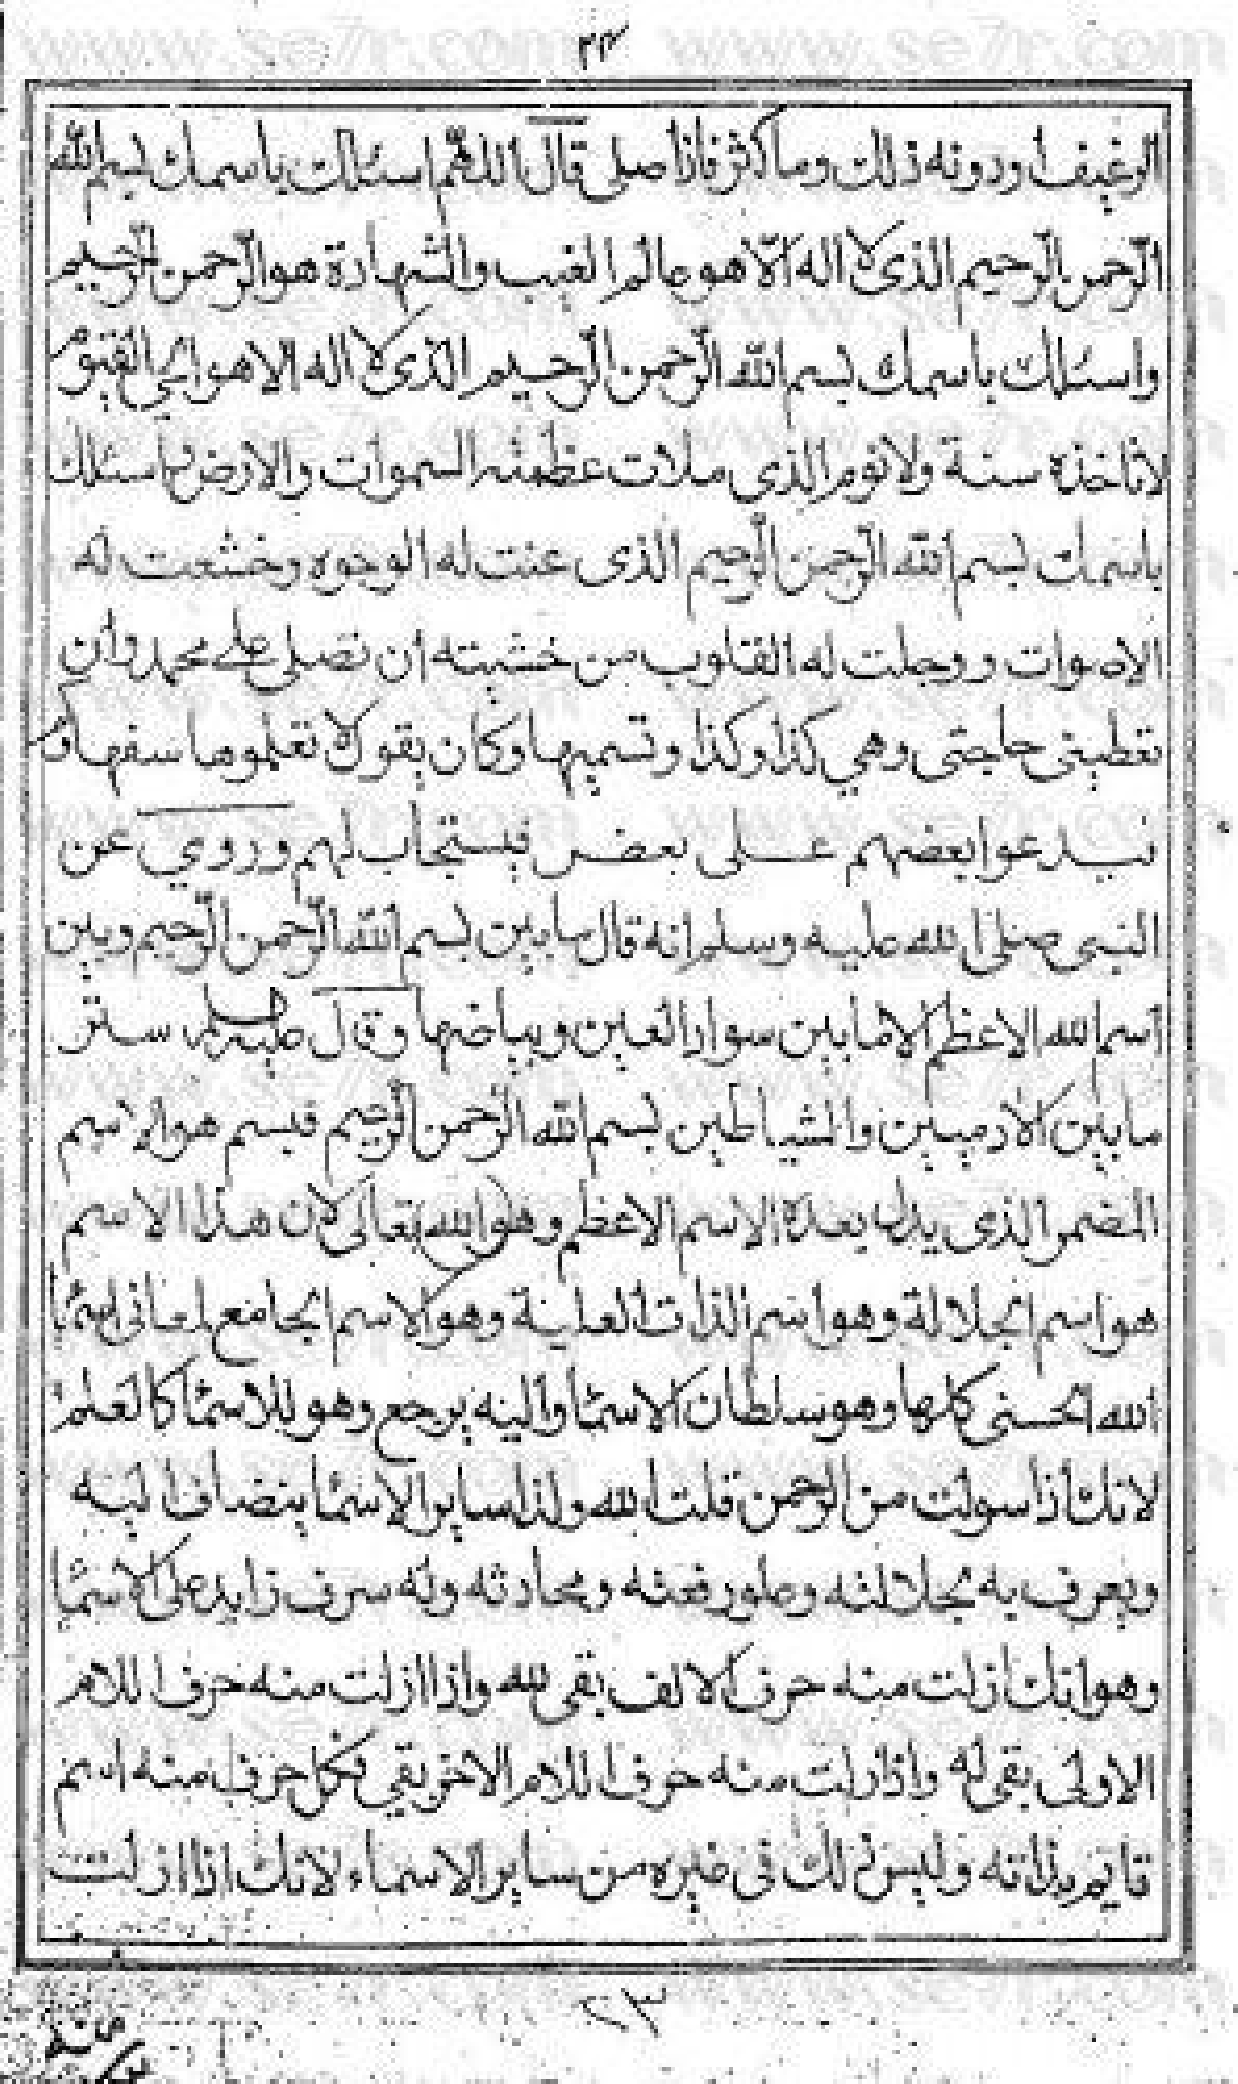 ٢٣
الرغيف او دونه ذلك وما كثر فاذا صلى قال اللهم اسئلك باسمك بسم الله
الرحمن الرحيم الذى لا اله الا هو عالم الغيب والشهادة هو الرحمن الرحيم
واسئلك باسمك بسم الله الرحمن الرحيم الذى لا اله الا هو الحي القيوم
لا تاخذه سنة ولا نوم الذي ملات عظمته السموات والارض واسئلك
باسمك بسم الله الرحمن الرحيم الذى عنت له الوجوه وخشعت له
الاصوات ووجلت له القلوب من خشيته ان تصلى على محمد وان
تعطينى حاجتى وهي كذا وكذا وتسميها وكان يقول لا تعلموها سفهاوكم
فيدعوا بعضهم على بعض فيستجاب لهم وروي عن
النبى صلى الله عليه وسلم انه قال ما بين بسم الله الرحمن الرحيم وبين
اسم الله الاعظم الا ما بين سواد العين وبياضها وقال ستر
ما بين الادميين والشياطين بسم الله الرحمن الرحيم فبسم هو الاسم
المضمر الذى يدل بعده الاسم الاعظم وهو الله تعالى لان هذا الاسم
هو اسم الجلالة وهو اسم الذات العلية وهو الاسم الجامع لمعانى اسما
الله الحسنى كلها وهو سلطان الاسما واليه يرجع وهو للاسما كالعلم
لانك اذا سولت من الرحمن قلت الله ولذا ساير الاسما ينضاف اليه
ويعرف به لجلالته وعلو رفعته ومحادثه وله سرف زايد على الاسما
وهو انك ازلت منه حرف الالف بقى لله واذا ازلت منه حرف اللام
الاولى بقى له واذا ازلت منه حرف اللام الاخر بقي فكل حرف منه اسم
قايم بذاته وليس ذلك فى غيره من ساير الاسماء لانك اذا ازلت
٢٣
منه